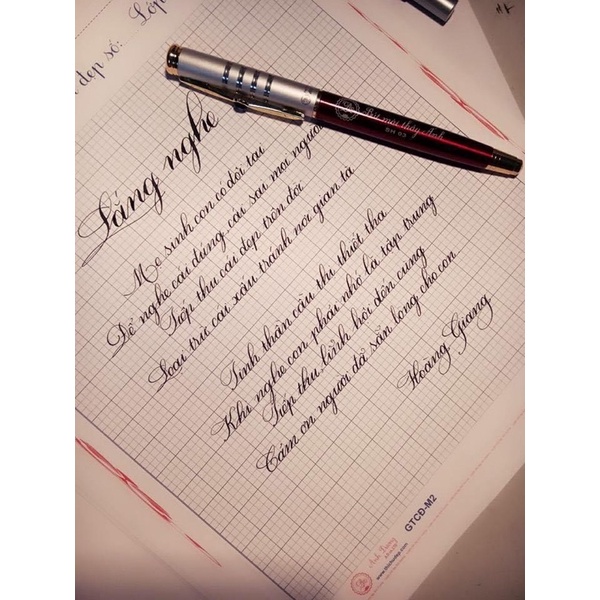 đẹp số: Lớp
Bút mài thầy Ánh
SH 03
Lắng nghe
Mẹ sinh con có đôi tai
Để nghe cái đúng, cái sai mọi người
Tiếp thu cái đẹp trên đời
Loại trừ cái xấu tránh nơi gian tà
Tinh thần cầu thị thiết tha
Khi nghe con phải nhớ là tập trung
Tiếp thu lĩnh hội đến cùng
Cám ơn người đã sẵn lòng cho con
Hoàng Giang
GTCĐ-M2